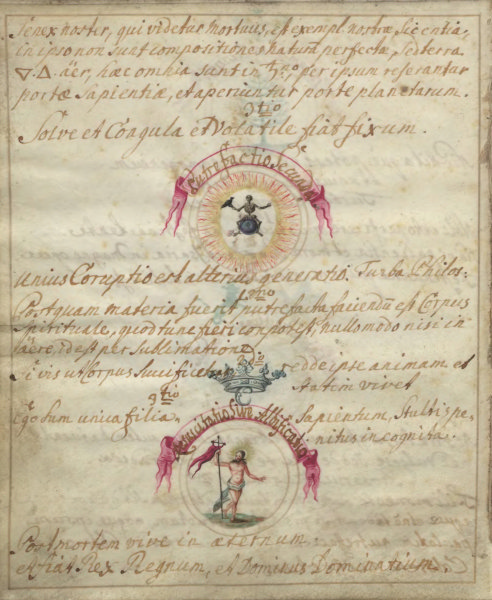 Senex noster, qui videtur mortuus, est exempl nostræ Sicentia,
in ipso non sunt compositiones naturæ perfectæ, sed terra
▽.△. äer, hæc omnia sunt in per ipsum reserantur
portæ Sapientiæ, et aperiuntur porte planetarum.
3tio
Solve et Coagula et Volatile fiat fixum.
Putrefactio secunda
Unius Corruptio est alterius generatio. Turba Philos.
1mo
Postquam materia fuerit putrefacta faciendũ est Corpus
spirituale, quod tunc fieri con potest, nullo modo nisi in
äere, id est per sublimatione
2do
si vis ut Corpus vivificetur redde ipse animam et
statem vivet
3tio
Ego sum unica filia Sapientum, stultis pe-
nitus incognita.
sive Albificatio
Post mortem vive in æternum:
et fiat Rex Regnum, et Dominus Dominatium.